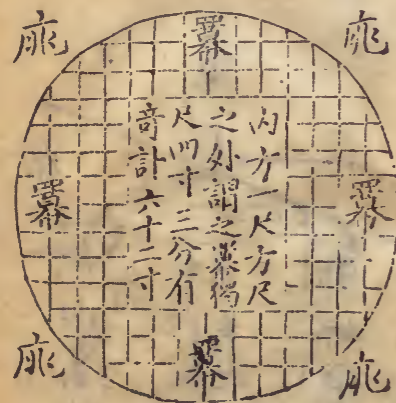 庣
羃
庣
羃
内方一尺方尺
之外謂之羃獨
尺四寸三分有
奇計六十二寸
羃
庣
羃
庣